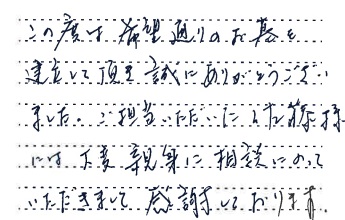 この度は希望通りのお墓を
建立して頂き誠にありがとうござい
ました。ご担当いただいた佐藤様
には大変親身に相談にのって
いただきまして感謝しております。